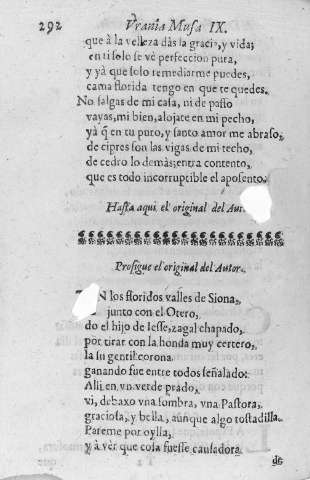 292 Vrania Musa IX.
que à la velleza dàs la gracia, y vida;
en ti solo se vè perfeccion pura,
y yà que solo remediarme puedes,
cama florida tengo en que te quedes.
No salgas de mi casa, ni de passo
vayas, mi bien, alojate en mi pecho,
yà q̃ en tu puro, y santo amor me abraso,
de cipres son las vigas de mi techo,
de cedro lo demàs; entra contento,
que es todo incorruptible el aposento.
Hasta aqui el original del
Prosigue el original del Autor.
EN los floridos valles de Siona,
junto con el Otero,
do el hijo de Iesse, zagal chapado,
por tirar con la honda muy certero,
la su gentil corona
ganando fue entre todos señalado:
Alli en vn verde prado,
vi, debaxo vna sombra, vna Pastora,
graciosa, y bella, aunque algo tostadilla.
Pareme por oylla,
y à vèr que cosa fuesse causadora
de